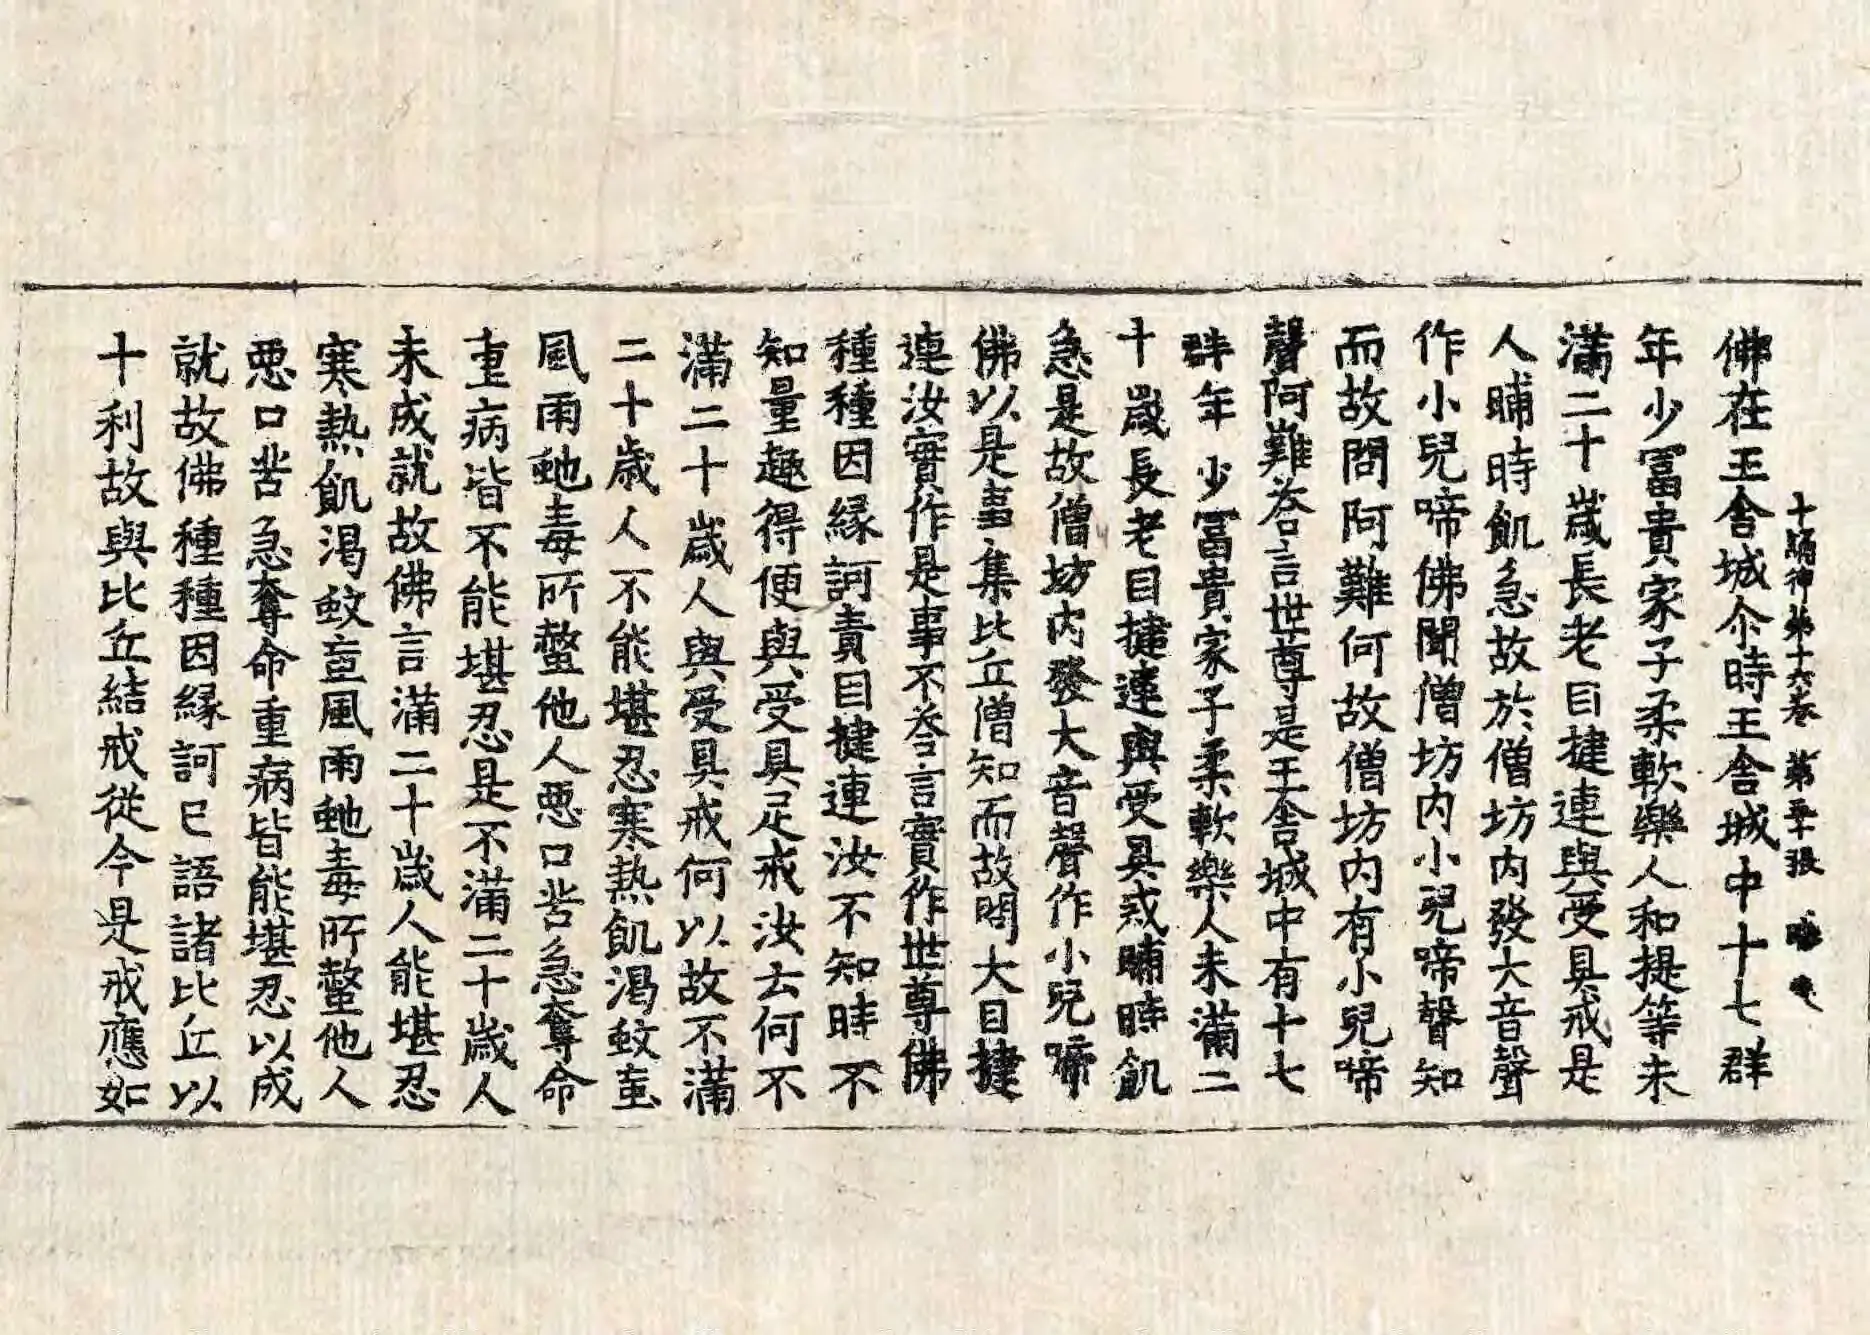 十誦律第十六卷 第五十張
佛在王舍城尒時王舍城中十七群
年少冨貴家子柔軟樂人和提等未
滿二十歲長老目揵連與受具戒是
人晡時飢急故於僧坊内發大音聲
作小兒啼佛聞僧坊内小兒啼聲知
而故問阿難何故僧坊内有小兒啼
聲阿難荅言世尊是王舍城中有十七
群年少冨貴家子柔軟樂人未滿二
十歲長老目揵連與受具戒晡時飢
急是故僧坊内發大音聲作小兒啼
佛以是事集比丘僧知而故問大目揵
連汝實作是事不荅言實作世尊佛
種種因緣訶責目揵連汝不知時不
知量趣得便與受具足戒汝云何不
滿二十歲人與受具戒何以故不滿
二十歲人不能堪忍寒熱飢渴蚊䖝
風雨虵毒所螫他人惡口苦急奪命
重病皆不能堪忍是不滿二十歲人
未成就故佛言滿二十歲人能堪忍
寒熱飢渴蚊䖝風雨虵毒所螫他人
惡口苦急奪命重病皆能堪忍以成
就故佛種種因緣訶已語諸比丘以
十利故與比丘結戒從今是戒應如